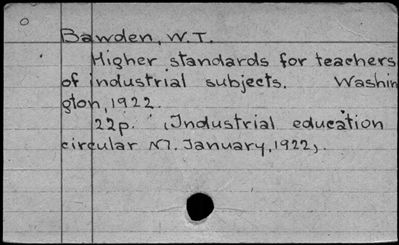 Bawden, W.T.
Higher standards for teachers
of industrial subjects. Washin
gton, 1922.
22p. (Industrial education
circular N7. January, 1922).